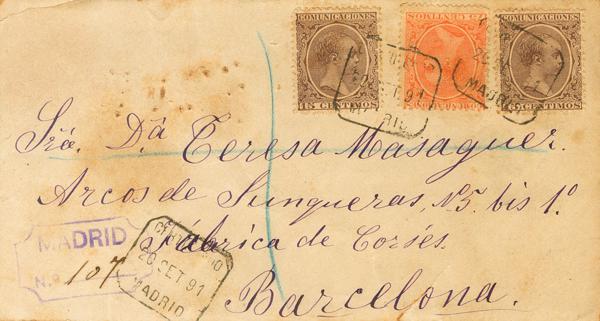 COMUNICACIONES COMUNICACIONES
15 CENTIMOS 15 CENTIMOS
SET 91
MADRID
Sra. Dª Teresa Masaguer.
Arcos de Junqueras, Nº5. bis 1º
Fábrica de Corsés.
Barcelona.
MADRID
N.º 107
CERTIFICADO
20 SET 91
MADRID